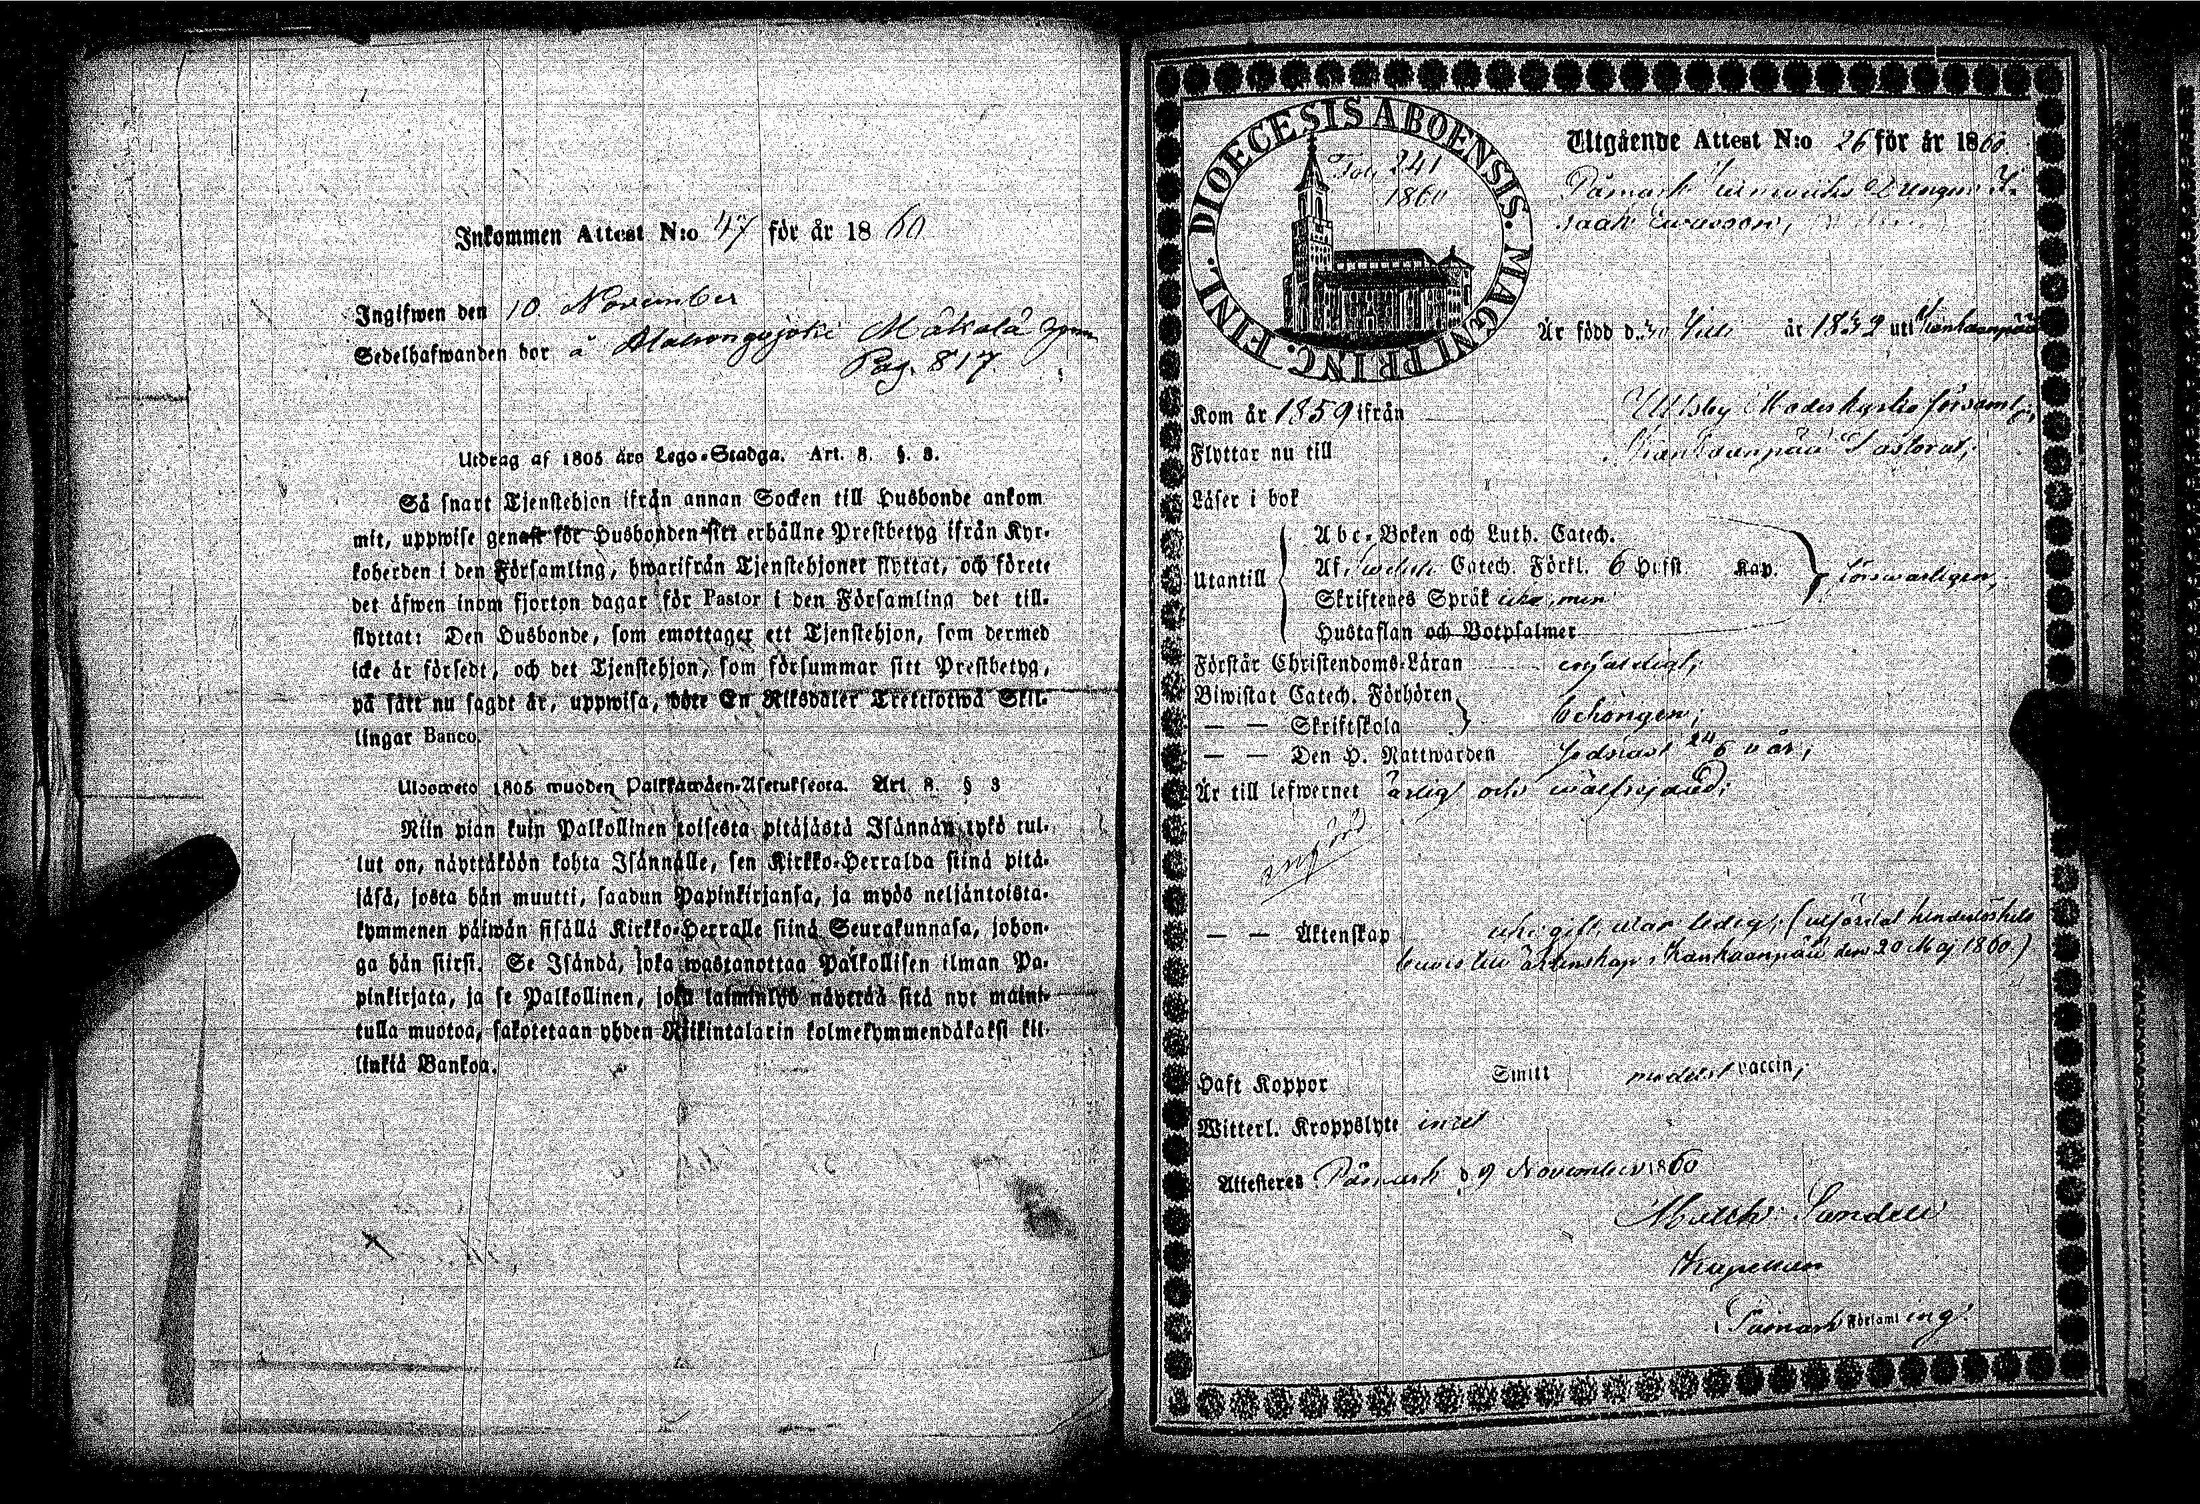 Inkommen Attest N:o 47 för år 1860
Ingifwen den 10 November
Sedelhafwanden bor å Mäkälä
Pag. 817.
Utdrag af 1805 års Lego-Stadga. Art. 8. §. 3.
Så snart Tjenstehjon ifrån annan Socken till Husbonde ankom
mit, uppwise genast för Husbonden sitt erhållne Prestbetyg ifrån Kyr-
koherden i den Församling, hwarifrån Tjenstehjonet flyttat, och förete
det äfwen inom fjorton dagar för Pastor i den Församling det till-
flyttat: Den Husbonde, som emottager ett Tjenstehjon, som dermed
icke är försedt, och det Tjenstehjon, som försummar sitt Prestbetyg,
på sätt nu sagdt är, uppwisa, böte En Riksdaler Trettiotwå Skil-
lingar Banco.
Ulosweto 1805 wuoden Palkkawäen-Asetuksesta. Art. 8. § 3
Niin pian kuin Palkollinen toisesta pitäjästä Isännän tykö tul-
lut on, näyttäköön kohta Isännälle, sen Kirkko-Herralda siinä pitä-
jäsä, josta hän muutti, saadun Papinkirjansa, ja myös neljäntoista-
kymmenen päiwän sisällä Kirkko-Herralle siinä Seurakunnasa, johon-
ga hän siirsi. Se Isändä, joka wastanottaa Palkollisen ilman Pa-
pinkirjata, ja se Palkollinen, joka laiminlyö näyttää sitä nyt maini-
tulla muotoa, sakotetaan yhden Riikintalarin kolmekymmendäkaksi kil-
linkiä Bankoa.
DIOECESIS ABOENSIS. MAGNI PRINC. FINL.
Fol. 241
1860
Utgående Attest N:o 26 för år 1860.
Påmark Drengen I-
saak
Är född d. 30 Juli år 1832 uti Kankaanpää
Kom år 1859 ifrån Ulfsby Moderkyrko församl.
Flyttar nu till Kankaanpää Pastorat;
Läser i bok
Utantill
Abc-Boken och Luth. Catech.
Af Svebilii Catech. Förkl. 6 Hufst. Kap.
Skriftenes Språk
Hustaflan och Botpsalmer
försvarligen;
Förstår Christendoms-Läran enfaldigt;
Biwistat Catech. Förhören
— — Skriftskola
behörigen;
— — Den H. Nattwarden sednast 24/6 d. år;
Är till lefwernet ärlig och wälfrejdad;
— — Äktenskap gift, utan ledig; (utfärdat hinderslöshets
bevis till äktenskap i Kankaanpää den 20 Maj 1860.)
Haft Koppor Smitt medelst vaccin;
Witterl. Kroppslyte intet
Attesteras Påmark d. 9 November 1860
Sundell
Kapellan
Påmark Församling.